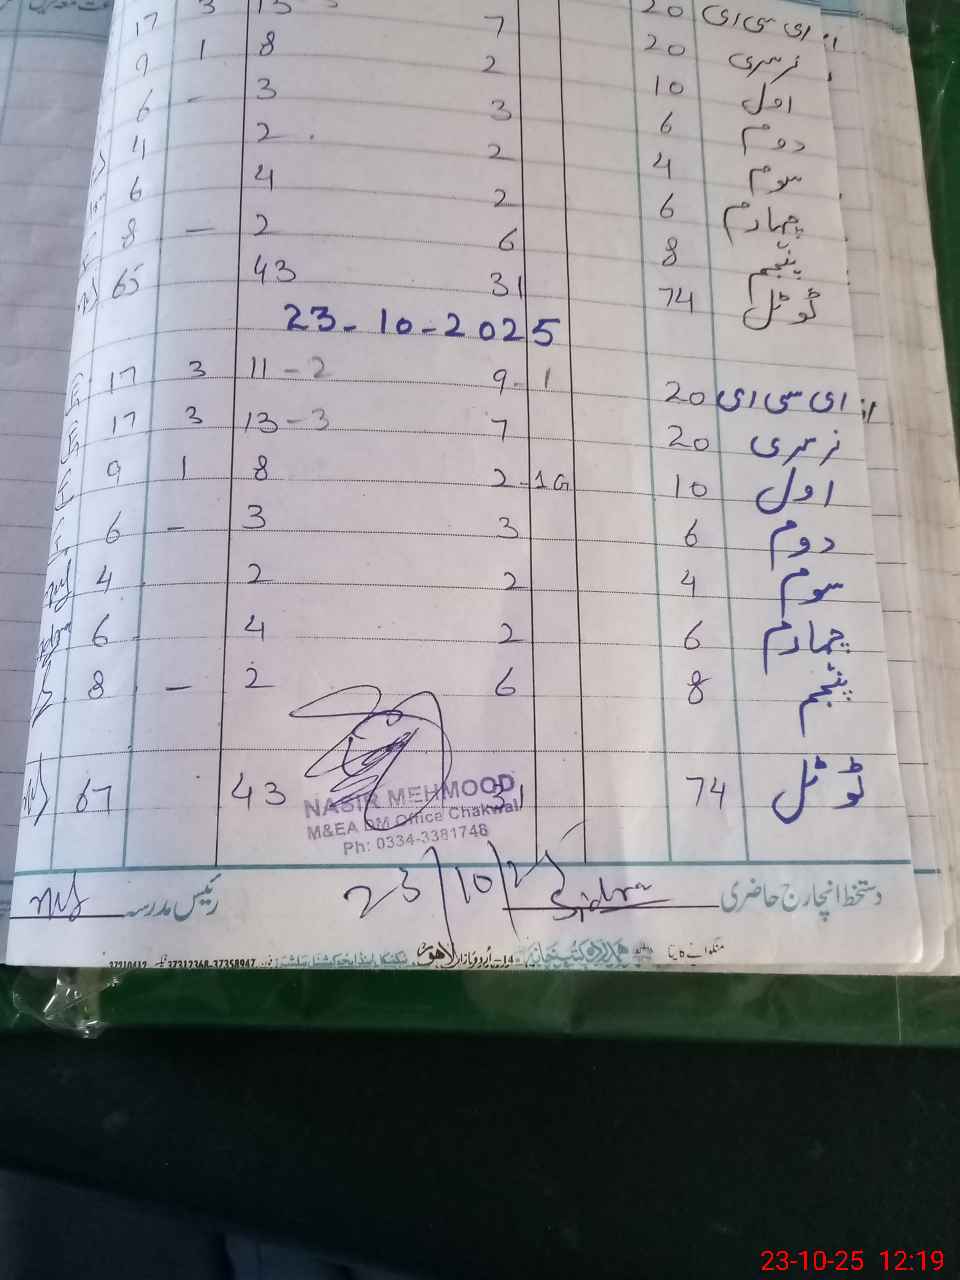 17 3 13-3 7 20 ای سی ای
9 1 8 2 20 نرسری
6 - 3 3 10 اول
4 2 2 6 دوم
6 4 2 4 سوم
8 - 2 6 6 چہارم
8 پنجم
65 43 31 74 ٹوٹل
23-10-2025
17 3 11-2 9-1 20 ای سی ای
17 3 13-3 7 20 نرسری
9 1 8 2-1G 10 اول
6 - 3 3 6 دوم
4 2 2 4 سوم
6 4 2 6 چہارم
8 - 2 6 8 پنجم
67 43 31 74 ٹوٹل
NASIR MEHMOOD
M&EA DM Office Chakwal
Ph: 0334-3381746
23/10/25
دستخط انچارج حاضری Sidra رئیس مدرسہ
37310412 37312368-37358947
23-10-25 12:19